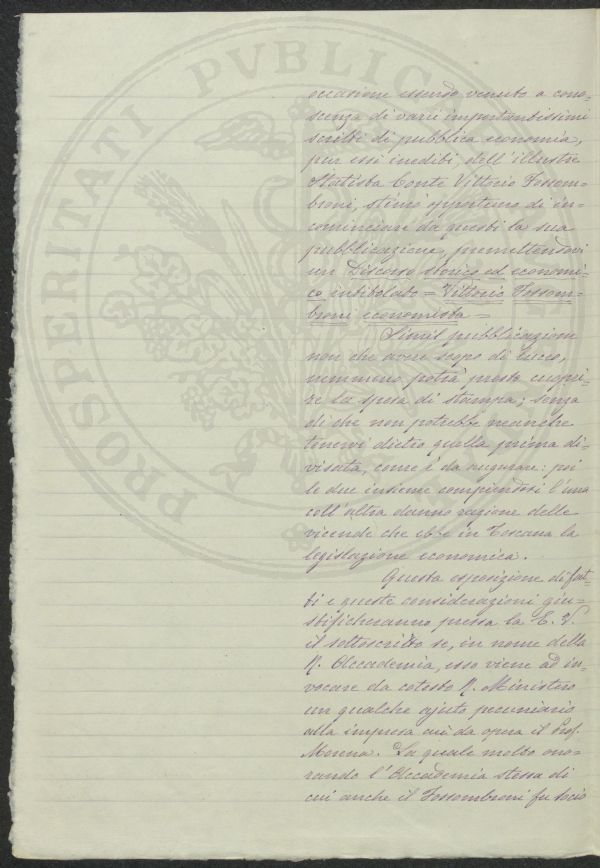 occasione essendo venuto a cono=
scenza di varii importantissimi
scritti di pubblica economia,
pur essi inediti, dell'illustre
Statista Conte Vittorio Fossom=
broni, stimò opportuno di in=
cominciare da questi la sua
pubblicazione, premettendovi
un Discorso storico ed economi=
co intitolato = Vittorio Fossom=
broni economista =
Simil pubblicazione
non che avere scopo di lucro,
nemmeno potrà presto cuopri=
re la spesa di stampa; senza
di che non potrebbe neanche
tenervi dietro quella prima di=
visata, come è da augurare: poi
le due insieme compiendosi l'una
coll'altra danno ragione delle
vicende che ebbe in Toscana la
legislazione economica.
Questa esposizione di fat=
ti e queste considerazioni giu=
stificheranno presso la E. V.
il sottoscritto se, in nome della
R. Accademia, esso viene ad in=
vocare da cotesto R. Ministero
un qualche ajuto pecuniario
alla impresa cui da opera il Prof.
Morena. La quale molto ono=
rando l'Accademia stessa di
cui anche il Fossombroni fu socio
PROSPERITATI PVBLICAE